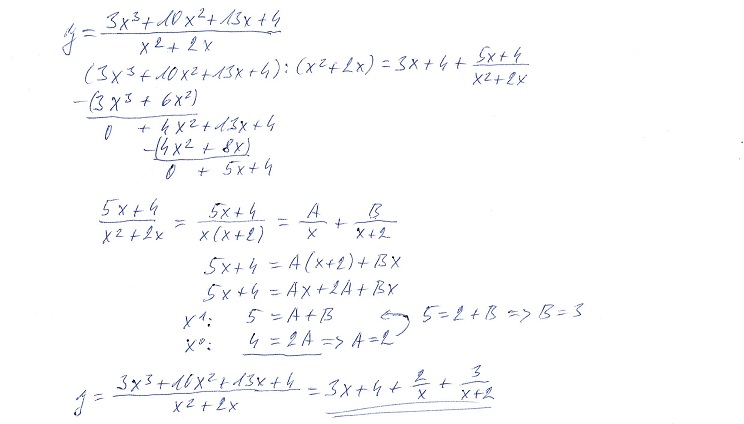 y = (3x³+10x²+13x+4)/(x²+2x)
(3x³+10x²+13x+4):(x²+2x) = 3x+4 + (5x+4)/(x²+2x)
-(3x³ + 6x²)
0 + 4x²+13x+4
-(4x² + 8x)
0 + 5x+4
(5x+4)/(x²+2x) = (5x+4)/(x(x+2)) = A/x + B/(x+2)
5x+4 = A(x+2)+Bx
5x+4 = Ax+2A+Bx
x¹: 5 = A+B ← 5=2+B => B=3
x⁰: 4 = 2A => A=2
y = (3x³+10x²+13x+4)/(x²+2x) = 3x+4 + 2/x + 3/(x+2)